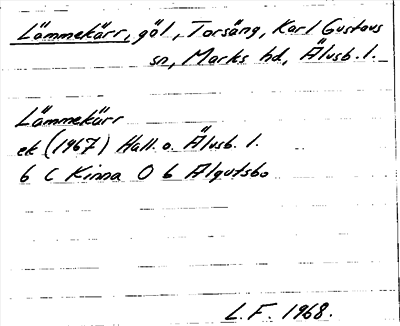 Lämmekärr, göl, Torsäng, Karl Gustavs
sn, Marks hd, Älvsb. l.
Lämmekärr
ek (1967) Hall. o. Älvsb. l.
6 C Kinna 0 6 Algutsbo
L.F. 1968.